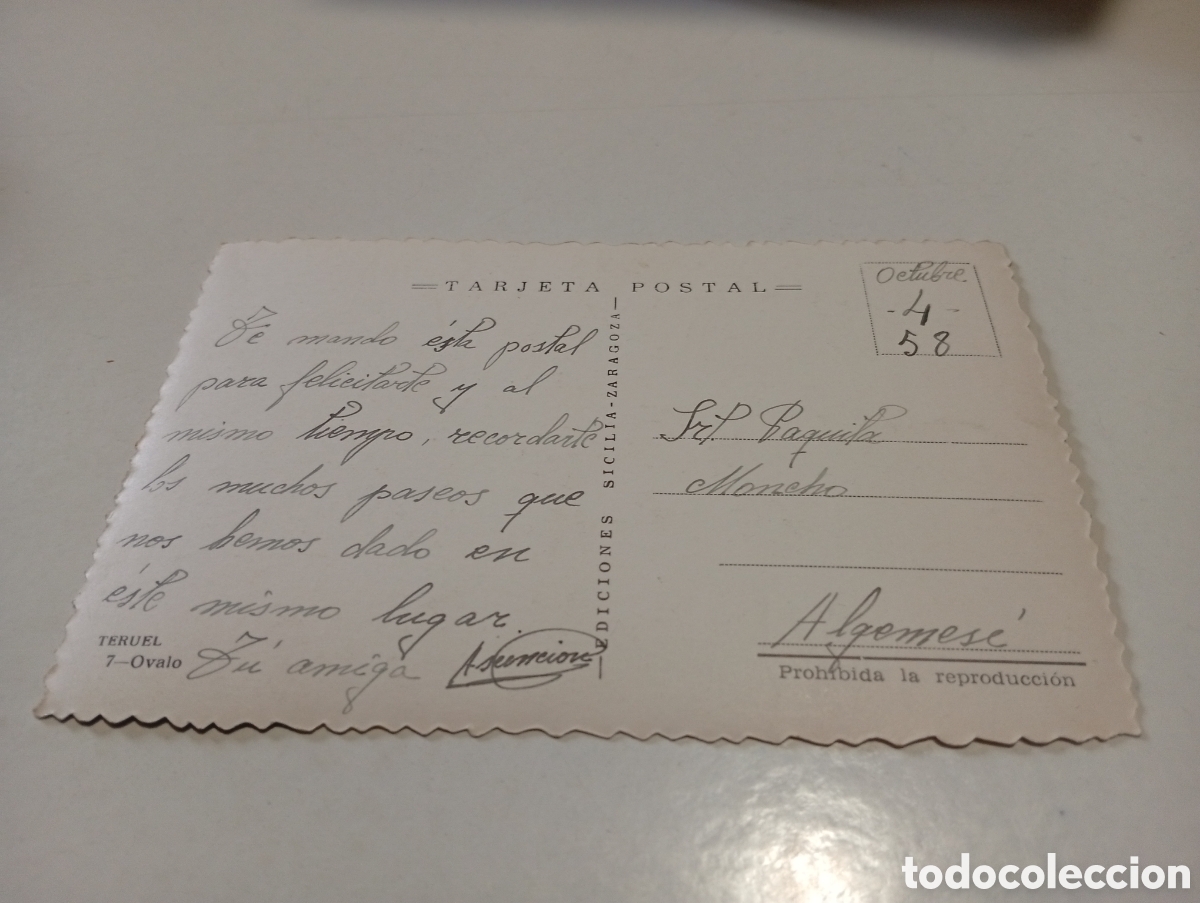 TARJETA POSTAL
Té mando ésta postal
para felicitarte y al
mismo tiempo, recordarte
los muchos paseos que
nos hemos dado en
éste mismo lugar.
Tú amiga Asuncion
TERUEL
7-Ovalo
EDICIONES SICILIA-ZARAGOZA
Octubre
-4-
58
Srt. Paquita
Moncho
Algemesé
Prohibida la reproducción
todocoleccion